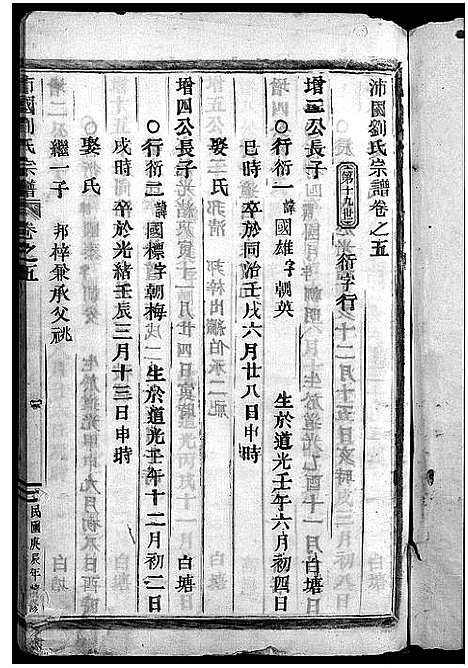 沛國劉氏宗譜卷之五
第十九世 衍字行
增三公長子 白塘
○行衍一 諱國雄字朝英 生於道光壬午六月初四日
巳時 卒於同治壬戌六月廿八日申時
娶 氏
增四公長子 白塘
○行衍二 諱國標字朝梅 生於道光壬午十二月初二日
戌時 卒於光緒壬辰三月十三日申時
娶 氏
繼一子 邦梓兼承父祧
沛國劉氏宗譜 卷之五 二 民國庚辰年